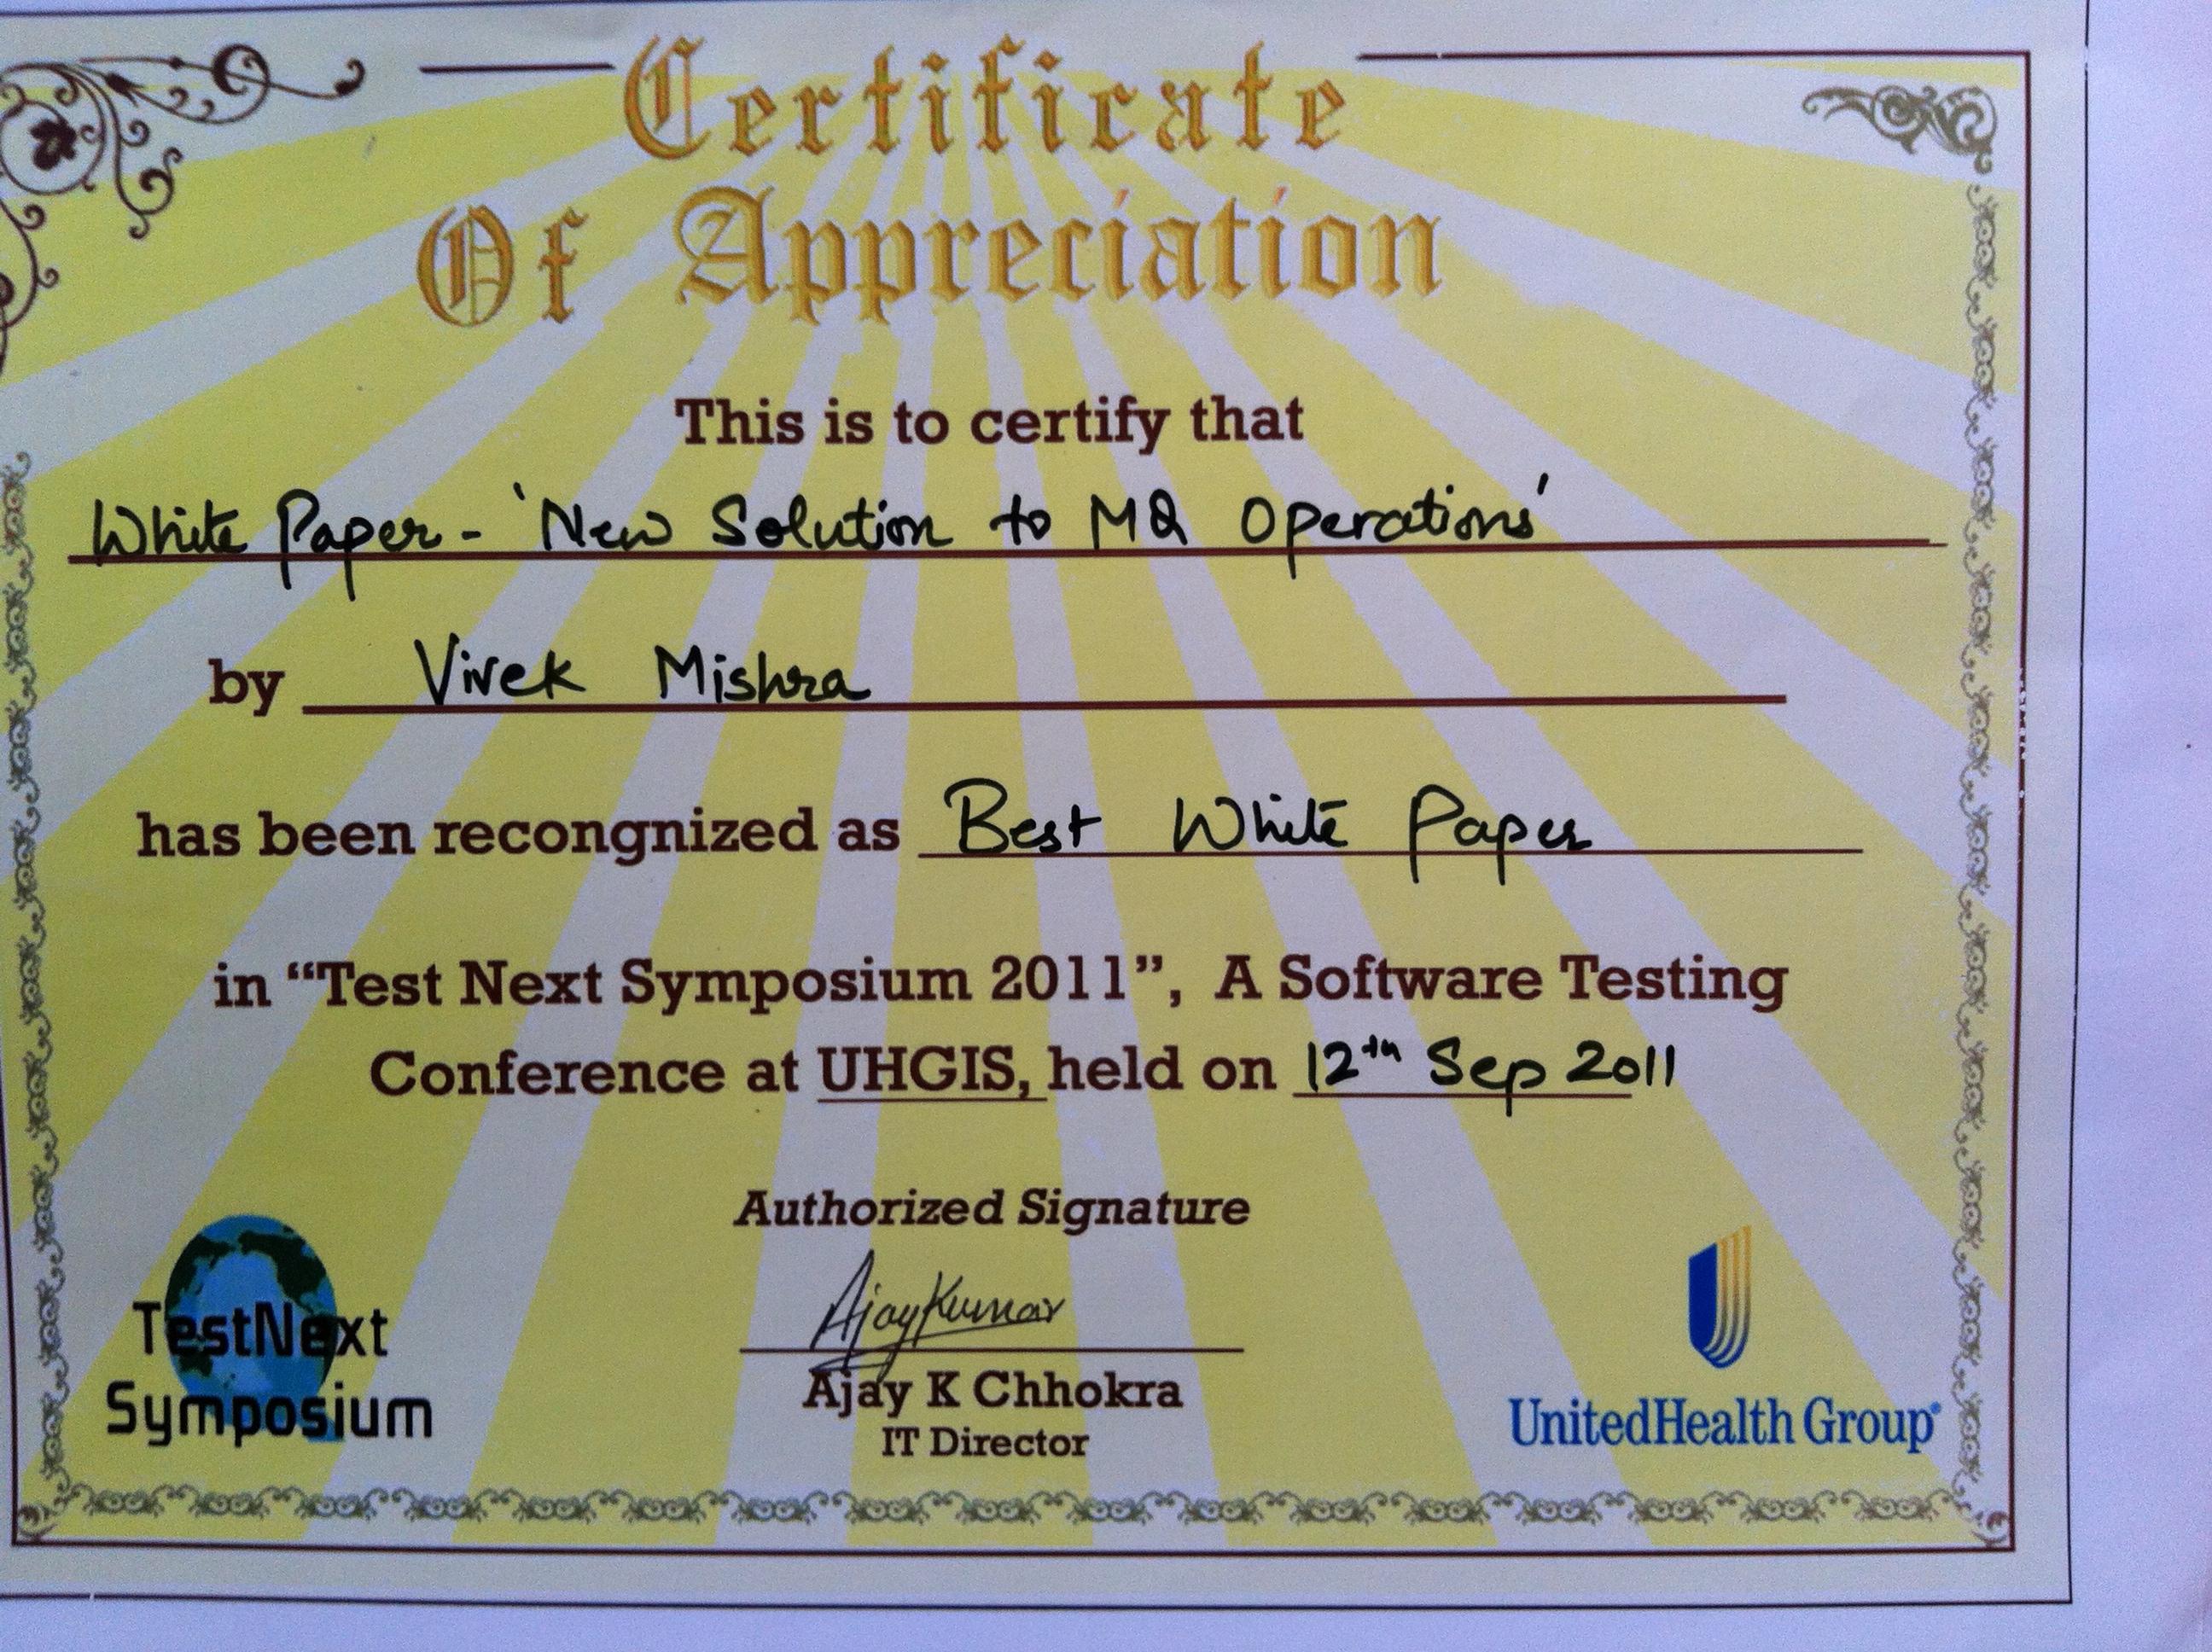 Certificate
Of Appreciation
This is to certify that
White Paper - 'New Solution to MQ Operations'
by Vivek Mishra
has been recongnized as Best White Paper
in “Test Next Symposium 2011”, A Software Testing
Conference at UHGIS, held on 12th Sep 2011
Authorized Signature
AjayKumar
Ajay K Chhokra
IT Director
TestNext
Symposium
UnitedHealth Group®